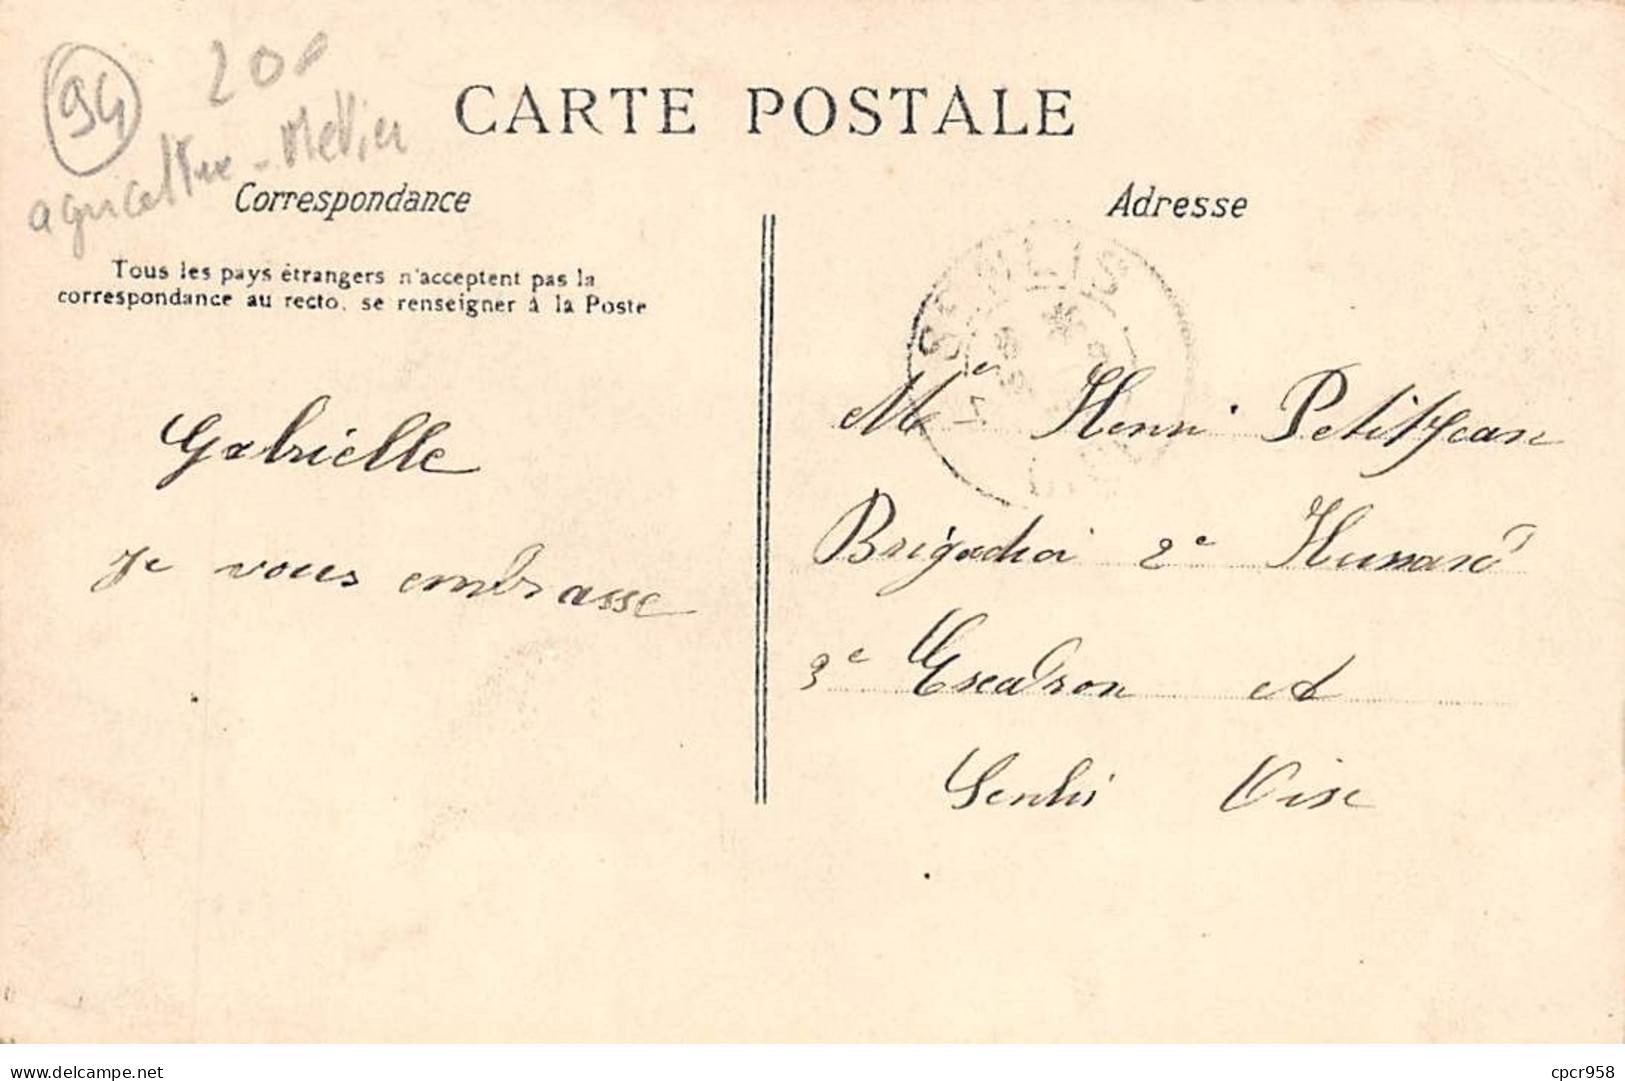 94
200
agriculture - Métier
CARTE POSTALE
Correspondance
Tous les pays étrangers n'acceptent pas la
correspondance au recto, se renseigner à la Poste
Gabrielle
Je vous embrasse
Adresse
SENLIS
OISE
Mr Henri Petitjean
Brigadier 2e Hussard
3e Escadron
Senlis Oise
Website: Delcampe.net
cpcr958